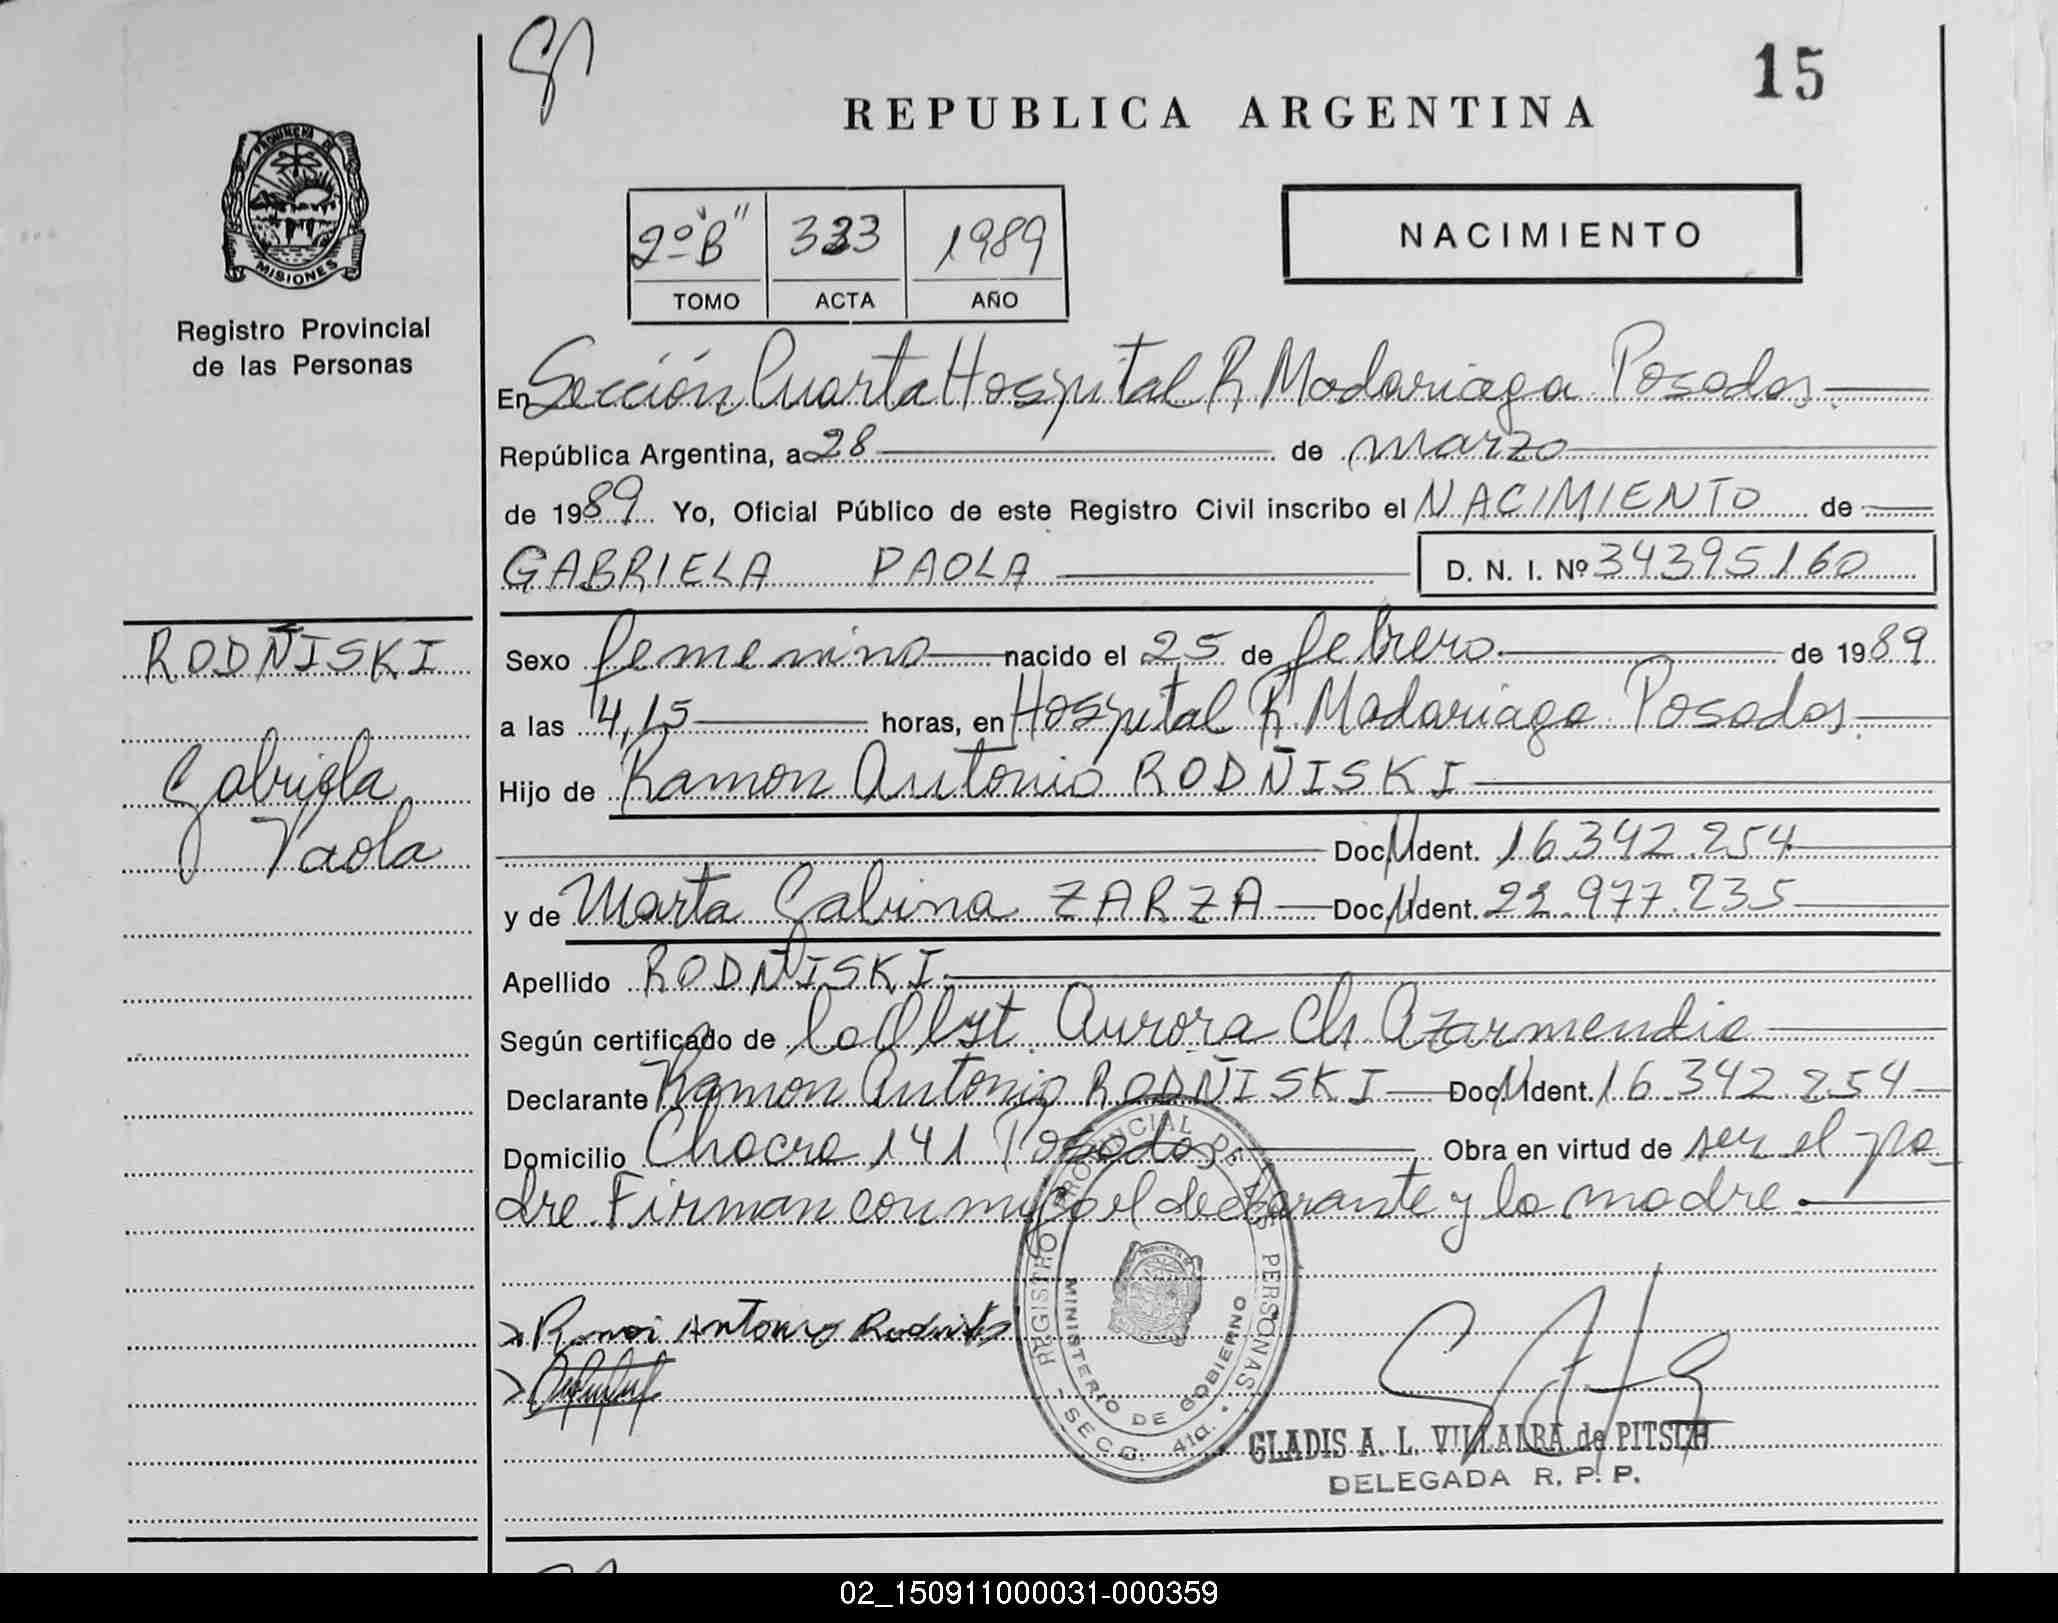 15
REPUBLICA ARGENTINA
PROVINCIA DE
MISIONES
Registro Provincial
de las Personas
2º "B" 333 1989
TOMO ACTA AÑO
NACIMIENTO
En Sección Cuarta Hospital R Madariaga Posadas.
República Argentina, a 28 de marzo
de 1989 Yo, Oficial Público de este Registro Civil inscribo el NACIMIENTO de
GABRIELA PAOLA D. N. I. Nº 34395160
RODÑISKI
Gabriela
Paola
Sexo femenino nacido el 25 de febrero de 1989
a las 4,15 horas, en Hospital R. Madariaga Posadas.
Hijo de Ramon Antonio RODÑISKI
Doc. Ident. 16.342.254
y de Marta Sabina ZARZA Doc. Ident. 22.977.235
Apellido RODÑISKI
Según certificado de la Obst. Aurora Ch Azarmendia
Declarante Ramon Antonio RODÑISKI Doc. Ident. 16.342.254
Domicilio Chacra 141 Posadas Obra en virtud de ser el pa-
dre. Firman conmigo el declarante y la madre.
REGISTRO PROVINCIAL DE LAS PERSONAS
MINISTERIO DE GOBIERNO
SECC. 4ta.
Antonio
GLADIS A. L. VILLALBA de PITSCH
DELEGADA R. P. P.
02_150911000031-000359